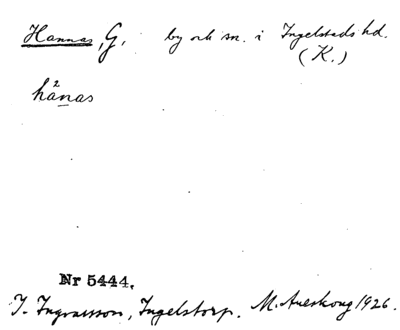 Hannas, G. by och sn. i Ingelstads hd.
(K.)
hä²nas
Nr 5444.
I. Ingvarsson, Ingelstorp. M. Areskoug 1926.